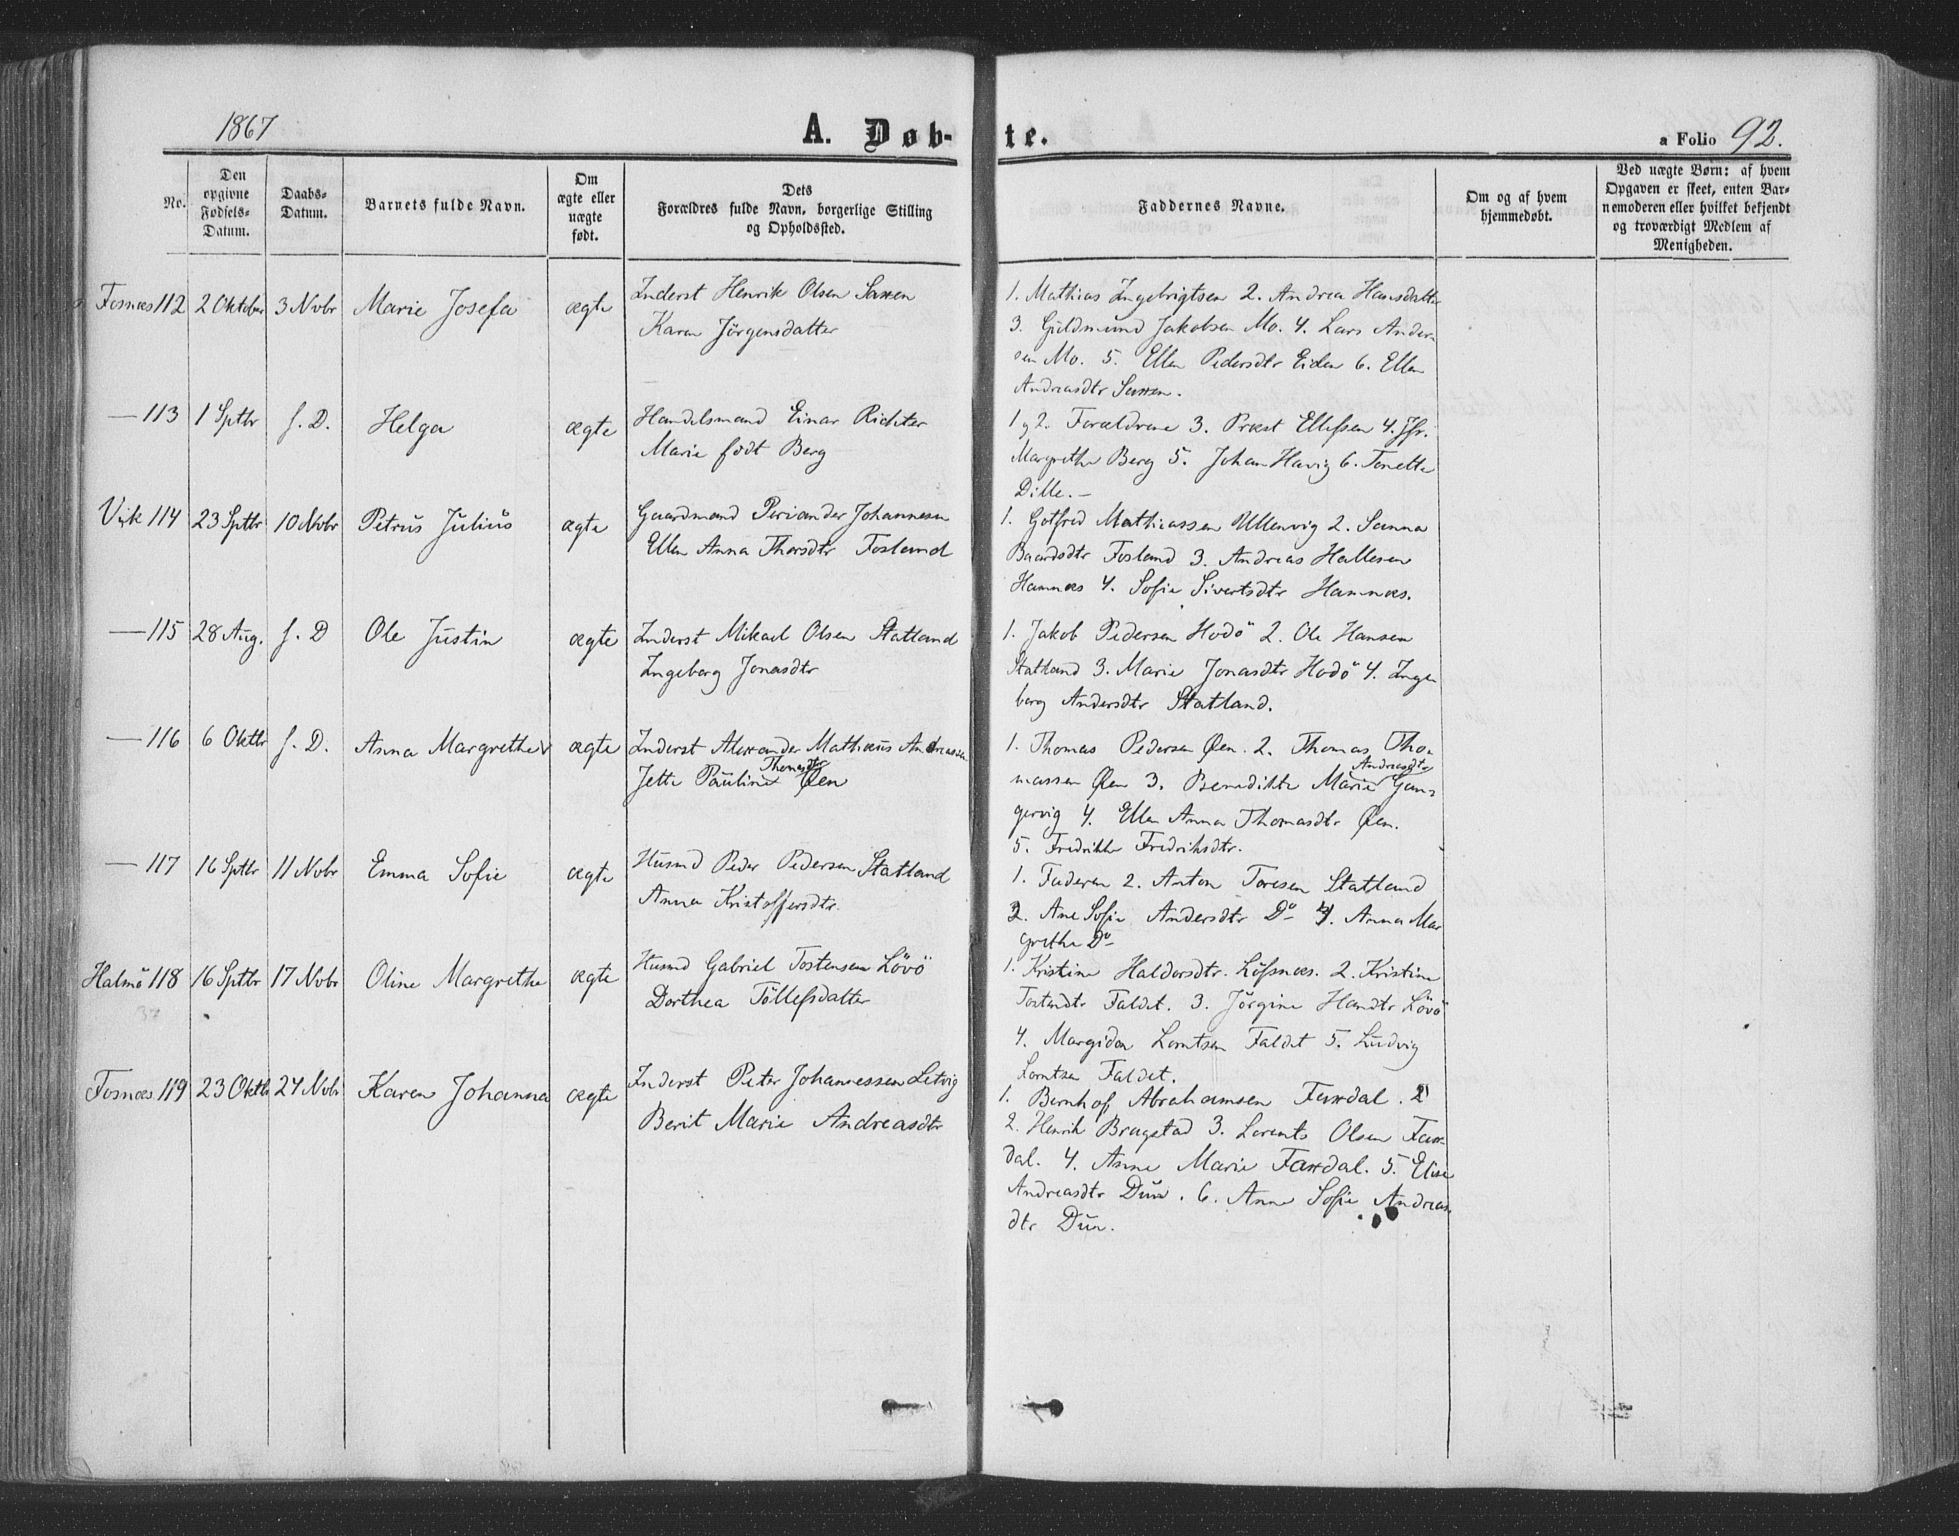 1867
A. Døb-
te.
a Folio 92.
No.
Den
opgivne
Fødsels-
Datum.
Daabs-
Datum.
Barnets fulde Navn.
Om
ægte eller
uægte
født.
Dets
Forældres fulde Navn, borgerlige Stilling
og Opholdssted.
Faddernes Navne.
Om og af hvem
hjemmedøbt.
Ved uægte Børn: af hvem
Opgaven er skeet, enten Bar-
nemoderen eller hvilket bekjendt
og troværdigt Medlem af
Menigheden.
Fosnæs 112 2 Oktober 3 Novbr Marie Josefa ægte Inderst Henrik Olsen Saxen
Karen Jörgensdatter
1. Mathias Ingebrigtsen 2. Andrea Hansdatter
3. Guldmund Jakobsen Mo. 4. Lars Ander-
sen Mo. 5. Ellen Pedersdtr Eiden 6. Ellen
Andreasdtr Saxen.
— 113 1 Sptbr s. D. Helga ægte Handelsmand Einar Richter
Marie født Berg
1 og 2. Forældrene 3. Præst Ellefsen 4. Jfr.
Margrethe Berg 5. Johan Havig 6. Tonette
Dille. —
Vik 114 23 Sptbr 10 Novbr Petrus Julius ægte Gaardmand Periander Johannesen
Ellen Anna Thorsdtr Fosland
1. Gotfred Mathiassen Ullenvig 2. Sanna
Baardsdtr Fosland 3. Andreas Hallesen
Hamnæs 4. Sofie Sivertsdtr Hamnæs.
— 115 28 Aug. s. D Ole Justin ægte Inderst Mikael Olsen Statland
Ingeborg Jonasdtr
1. Jakob Pedersen Hodö 2. Ole Hansen
Statland 3. Marie Jonasdtr Hodö 4. Inge
borg Andersdtr Statland.
— 116 6 Oktbr s. D. Anna Margrethe ægte Inderst Alexander Mathæus Andreassen
Jette Pauline Thomasdtr Øen
1. Thomas Pedersen Øen. 2. Thomas Tho-
massen Øen 3. Benedikte Marie Andreasdtr Gan-
gervig 4. Ellen Anna Thomasdtr Øen.
5. Fredrikke Fredriksdtr.
— 117 16 Sptbr 11 Novbr Emma Sofie ægte Husmd Peder Pedersen Statland
Anna Kristoffersdtr.
1. Faderen 2. Anton Toresen Statland
3. Ane Sofie Andersdtr Do 4. Anna Mar
grethe Do
Halmö 118 16 Sptbr 17 Novbr Oline Margrethe ægte Husmd Gabriel Tostensen Lövö
Dorthea Töllefsdatter
1. Kristine Haldorsdtr. Löfsnæs. 2. Kristine
Tostensdtr Faldet. 3. Jörgine Hansdtr Lövö
4. Margida Lorntsen Faldet 5. Ludvig
Lorntsen Faldet.
37
Fosnæs 119 23 Oktbr 24 Novbr Karen Johanna ægte Inderst Peter Johannessen Letvig
Berit Marie Andreasdtr
1. Bernhof Abrahamsen Faxdal.
2. Henrik Bragstad 3. Lorents Olsen Fax-
dal. 4. Anne Marie Faxdal. 5. Elise
Andreasdtr Dun. 6. Anne Sofie Andreas-
dtr Dun.